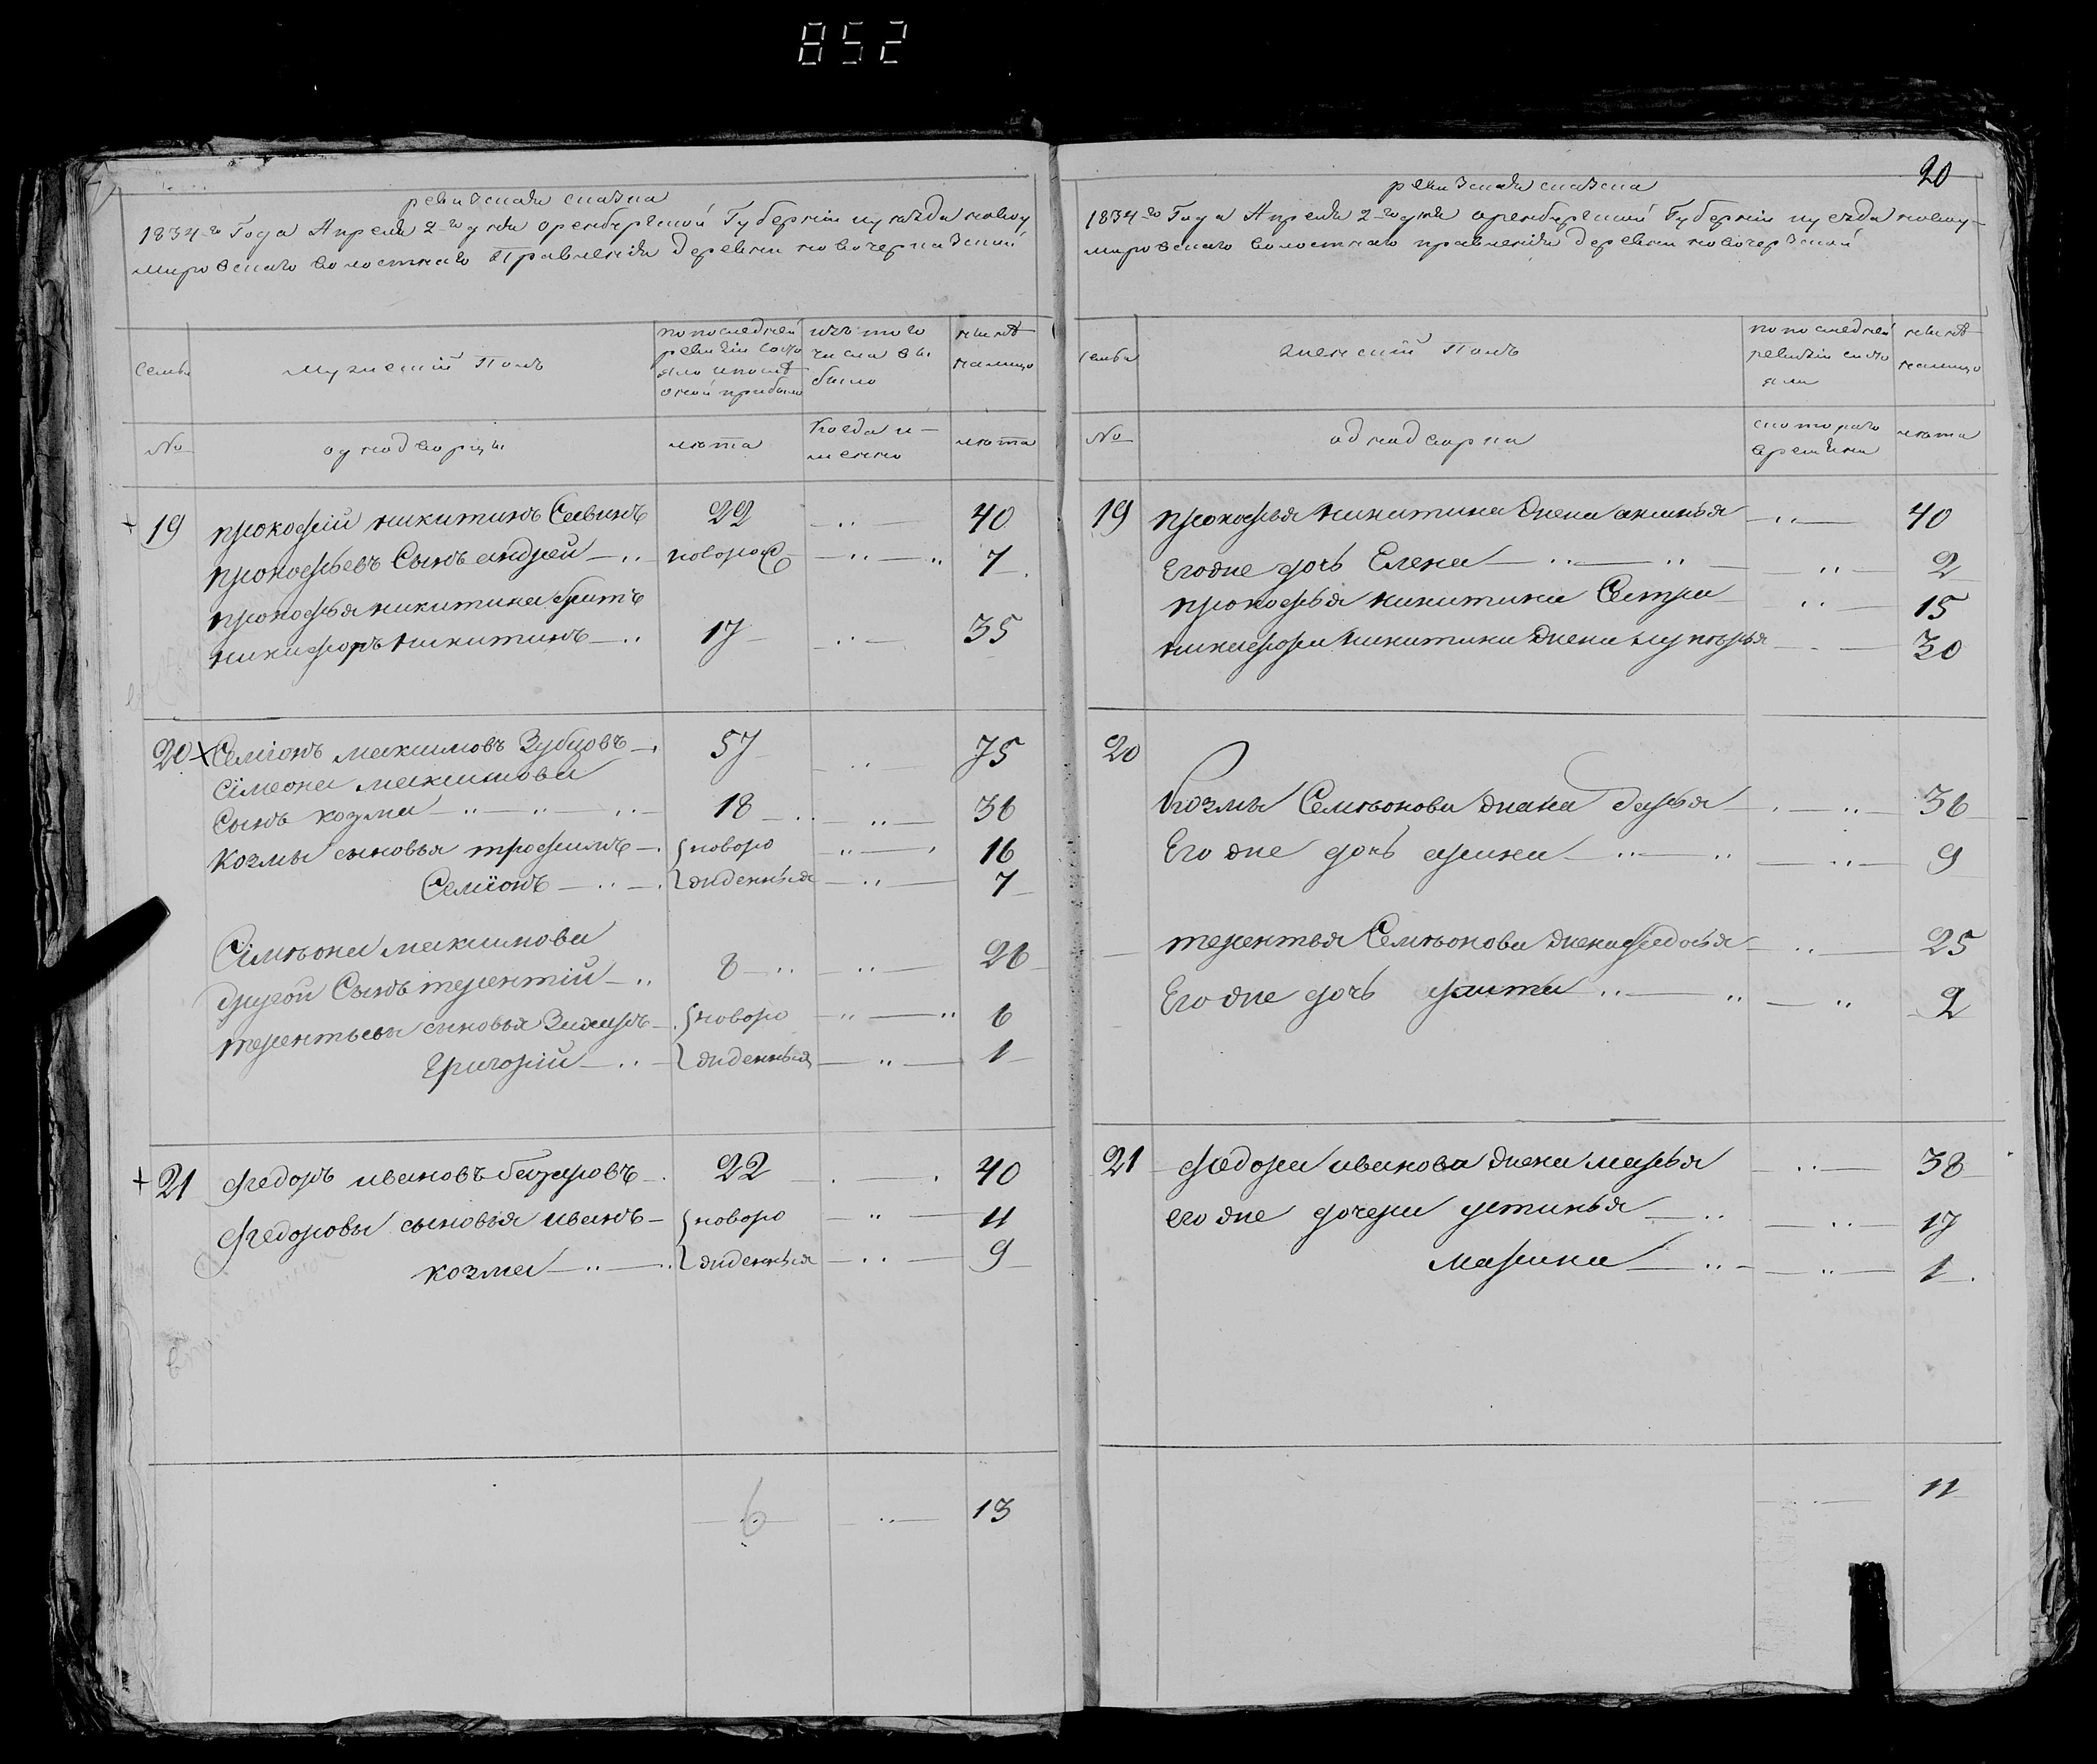 852
ревизская сказка
1834-го Года Апреля 2-го дня оренбургской Губернии и уезда новоу
мировскаго волостнаго Правления деревни новочеркаской
семьи
мужеский Полъ
по последней ревизии состояло и после оной прибыло
изъ того числа выбыло
ныне налицо
№
однодворцы
лета
Когда именно
лета
19 прокофий никитинъ Савинъ 22 40
прокофьевъ Сынъ андрей новорож 7
прокофья никитина братъ
никифоръ никитинъ 17 35
20 Семионъ максимовъ Зубцовъ 57 75
Симеона максимова
Сынъ козма 18 36
козмы сыновья трофимъ новоро 16
Семионъ жденныя 7
Симиона максимова
другой Сынъ терентий 8 26
терентьевы сыновья Захаръ новоро 6
Григорий жденныя 1
21 федоръ ивановъ 22 40
Федоровы сыновья иванъ новоро 11
козма жденныя 9
6 13
20
ревизская сказка
1834-го Года Апреля 2-го дня оренбургской Губернии и уезда новоу-
мировскаго волостнаго правления деревни
семьи
женский Полъ
по последней ревизии состояли
ныне налицо
№
однодворки
с котораго времени
лета
19 прокофья никитина жена аксинья 40
Его же дочь Елена 2
прокофья никитина Сестра 15
никифора никитина жена лукерья 30
20
Козмы Семионова жена дарья 36
Его же дочь арина 9
терентья Семионова жена федосья 25
Его же дочь 2
21 федора иванова жена марья 38
его же дочери устинья 17
марина 1
11